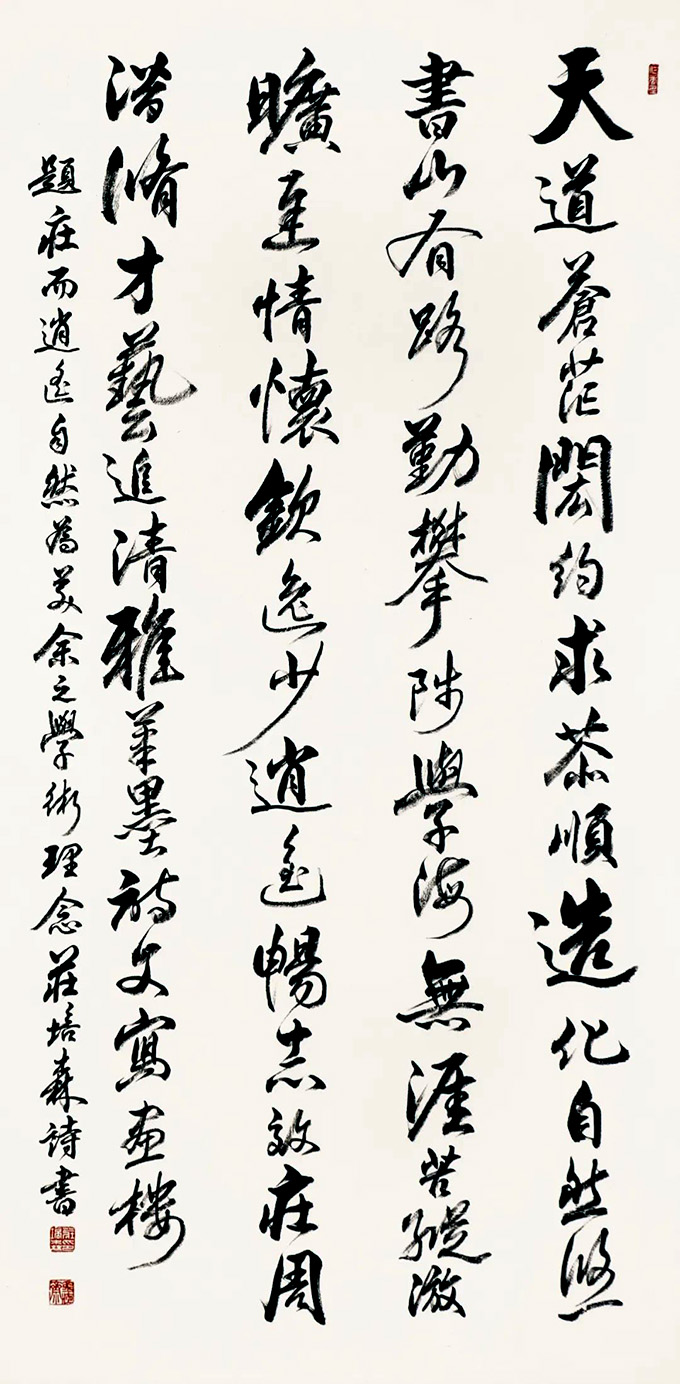 天道蒼茫閎約求恭順造化自然悠
書山有路勤攀陟學海無涯苦游
曠達情懷欽逸少逍遙暢志效莊周
潛脩才藝追清雅筆墨詩文寫畫樓
題莊而逍遙自然為美余之學術理念莊培森詩書